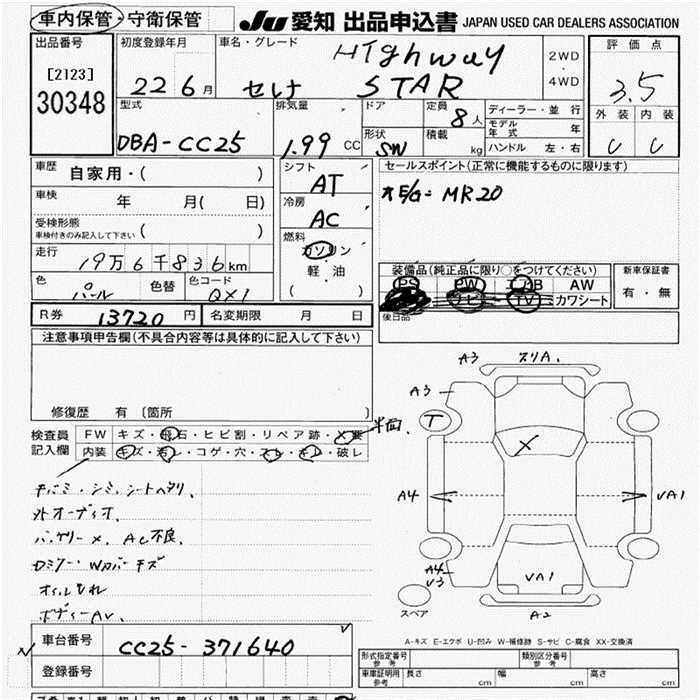 車内保管・守衛保管 JU 愛知 出品申込書 JAPAN USED CAR DEALERS ASSOCIATION
出品番号 初度登録年月 車名・グレード 評価点
[2123] Highway 2WD
30348 22 6月 セレナ STAR 4WD 3.5
型式 排気量 ドア 定員 ディーラー・並行 外装 内装
8人 モデル年式 年
DBA-CC25 1.99 CC 形状 SW 積載 kg ハンドル 左・右 C C
車歴 自家用・( ) シフト AT セールスポイント(正常に機能するものに限ります)
車検 年 月( 日) 冷房 AC オE/G=MR20
受検形態
車検付きのみ記入して下さい ( ) 燃料 ガソリン
走行 19万6千836km 軽・油 装備品(純正品に限り○をつけてください) 新車保証書
色 パール 色替 色コード QX1 ( ) PS PW エアB AW 有・無
ナビ TV カワシート
R券 13720円 名変期限 月 日 後日品
注意事項申告欄(不具合内容等は具体的に記入して下さい)
修復歴 有 [箇所 ]
A3 スリA.
A3
検査員 FW キズ・飛石・ヒビ割・リペア跡・X要 半面. T
記入欄 内装 キズ・汚レ・コゲ・穴・スレ・キレ・破レ
X
チバミ・シミ、シートヘタリ、
外オーディオ、 A4 VA1
バッテリー×、AC不良、
Dミラー・Wカバーキズ A4
V3 VA1
オイルもれ
ボディーAV、 スペア A2
車台番号 CC25-371640 A-キズ E-エクボ U-凹み W-補修跡 S-サビ C-腐食 XX-交換済
登録番号 形式指定番号 参考 類別区分番号 参考
車庫証明用 参考 長さ cm 幅 cm 高さ cm